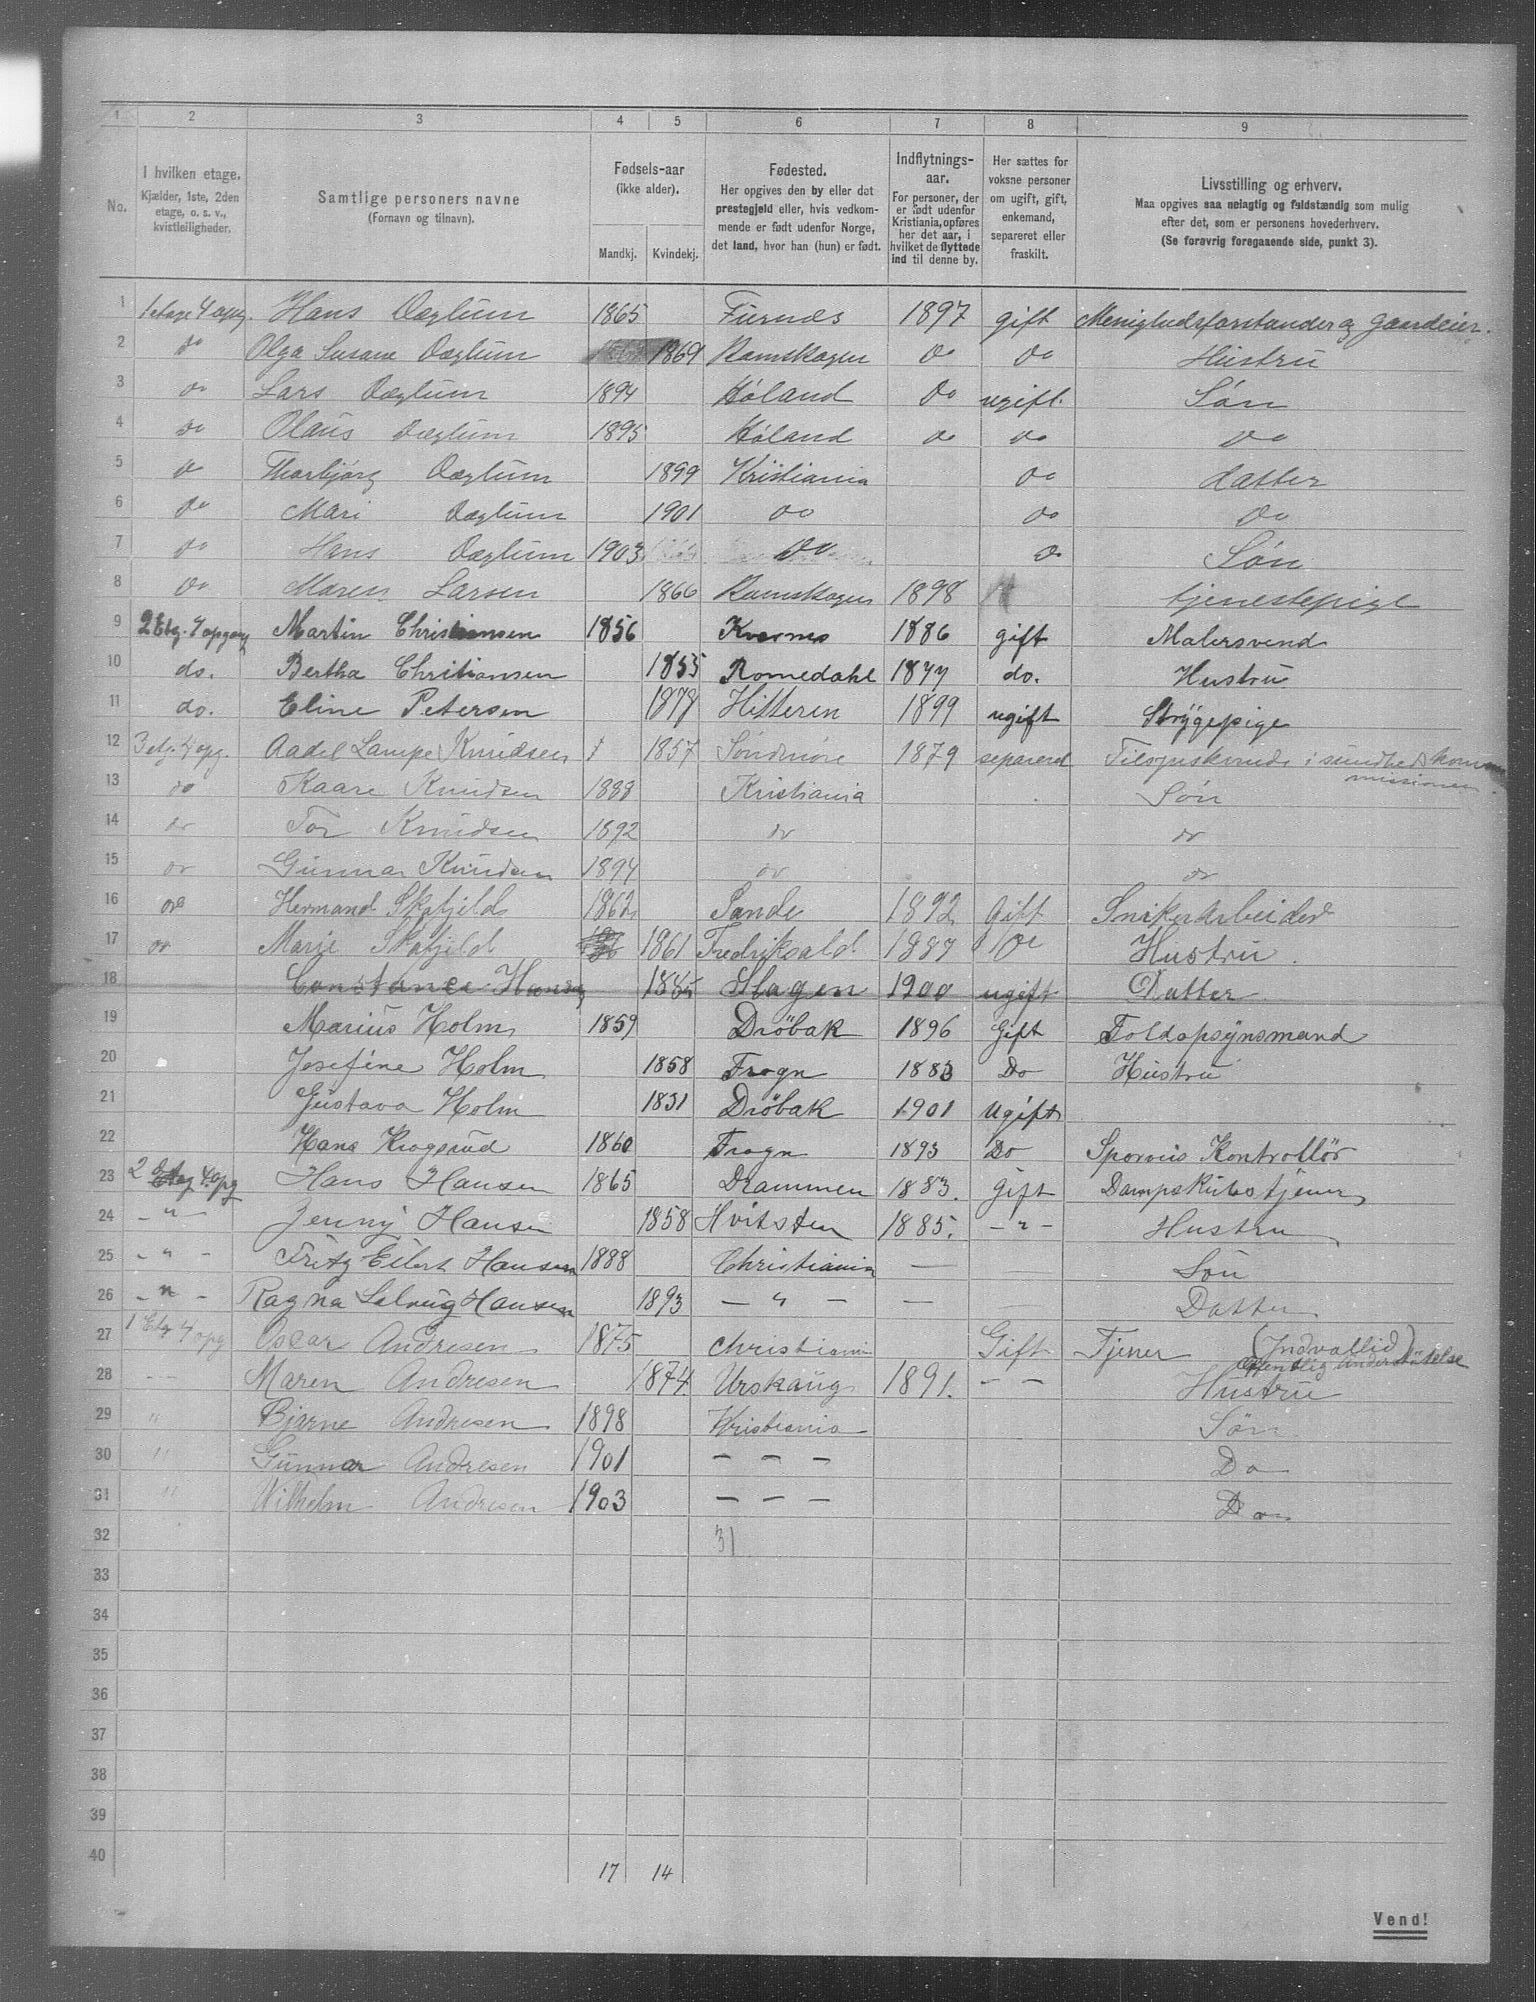 1 2 3 4 5 6 7 8 9
No.
I hvilken etage.
Kjælder, 1ste, 2den
etage, o. s. v.,
kvistleiligheder.
Samtlige personers navne
(Fornavn og tilnavn).
Fødsels-aar
(ikke alder).
Mandkj. Kvindekj.
Fødested.
Her opgives den by eller det
prestegjeld eller, hvis vedkom-
mende er født udenfor Norge,
det land, hvor han (hun) er født.
Indflytnings-
aar.
For personer, der
er født udenfor
Kristiania, opføres
her det aar, i
hvilket de flyttede
ind til denne by.
Her sættes for
voksne personer
om ugift, gift,
enkemand,
separeret eller
fraskilt.
Livsstilling og erhverv.
Maa opgives saa nøiagtig og fuldstændig som mulig
efter det, som er personens hovederhverv.
(Se forøvrig foregaaende side, punkt 3).
1 1 etage 4 opg. Hans Dæglum 1865 Furnes 1897 gift Menighedsforstander og Gaardeier.
2 do Olga Susane Dæglum 1869 Ramskogen do do Hustru
3 do Lars Dæglum 1894 Høland Do ugift. Søn
4 do Olaus Dæglum 1895 Høland do do do
5 do Thorbjørg Dæglum 1899 Kristiania do datter
6 do Mari Dæglum 1901 do do Do
7 do Hans Dæglum 1903 do do Søn
8 do Maren Larsen 1866 Ramskogen 1898 tjenestepige
9 2 Etg. 4 opgang Martin Christiansen 1856 Kværnes 1886 gift Malersvend
10 do. Bertha Christiansen 1855 Romedahl 1877 do. Hustru
11 do. Eline Petersen 1878 Hitteren 1899 ugift Strygepige
12 3 etg. 4 opg. Aadel Lampe Knudsen 1857 Søndmøre 1879 separeret Tilsynskvinde i sundhedskom
missionen.
13 do Kaare Knudsen 1888 Kristiania Søn
14 do Tor Knudsen 1892 do do
15 do Gunnar Knudsen 1894 do do
16 do Hermand Skafjeld 1862 Sande 1892 Gift Snikerarbeider
17 do Marie Skafjeld 1861 Fredriksald 1887 do Hustru.
18 Constance Hansen 1885 Slagen 1900 ugift Datter
19 Marius Holm 1859 Drøbak 1896 Gift Toldopsynsmand
20 Josefine Holm 1858 Frogn 1883 Do Hustru
21 Gustava Holm 1831 Drøbak 1901 Ugift
22 Hans Krogsrud 1860 Frogn 1893 Do Sporveis Kontrollør
23 2 Etag 4 opg Hans Hansen 1865 Drammen 1883. gift Dampskibs tjener
24 - " - Jenny Hansen 1858 Hvitsten 1885. - " - Hustru
25 - " - Fritz Eilert Hansen 1888 Christiania — Søn
26 - " - Ragna Solveig Hansen 1893 — " — — Datter
27 1 Etg 4 opg Oscar Andresen 1875 Christiania Gift Tjener (Indvallid)
offentlig understøtelse
28 — Maren Andresen 1874 Urskaug 1891. — — Hustru
29 " Bjarne Andresen 1898 Kristiania Søn
30 " Gunnar Andresen 1901 — — — Do
31 " Wilhelm Andresen 1903 — — — Do
32 31
33
34
35
36
37
38
39
40 17 14
Vend!